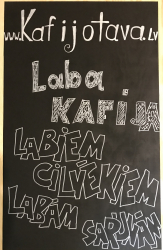 www.Kafijotava.lv
Laba
KAFIJA
LABIEM
CILVĒKIEM
LABĀM
SARUNĀM